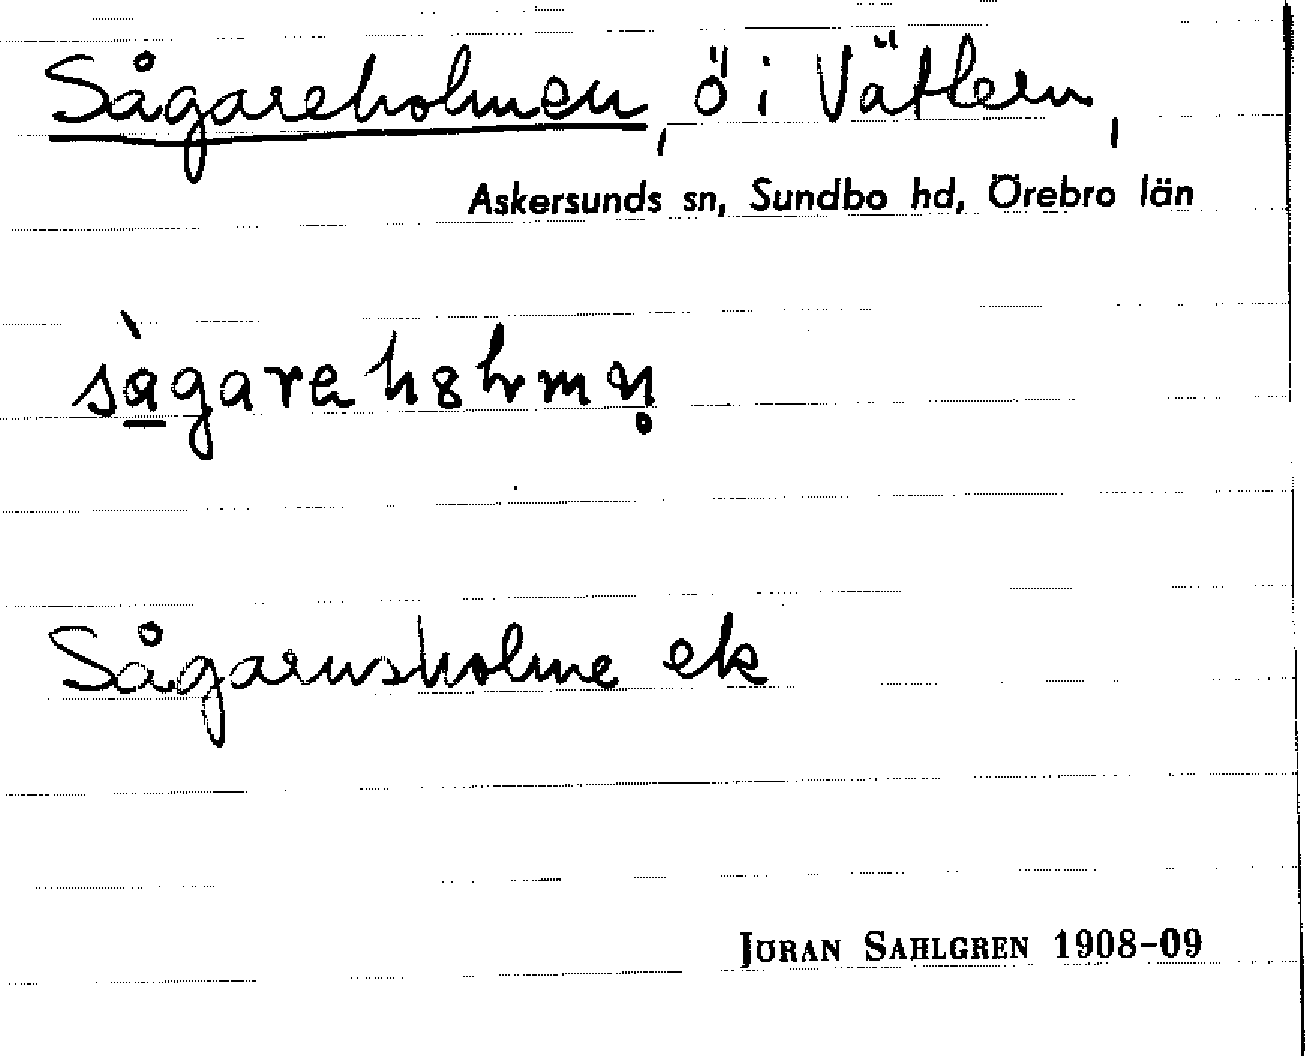 Sågareholmen, ö i Vättern,
Askersunds sn, Sundbo hd, Örebro län
Sågarnsholme ek
JÖRAN SAHLGREN 1908-09